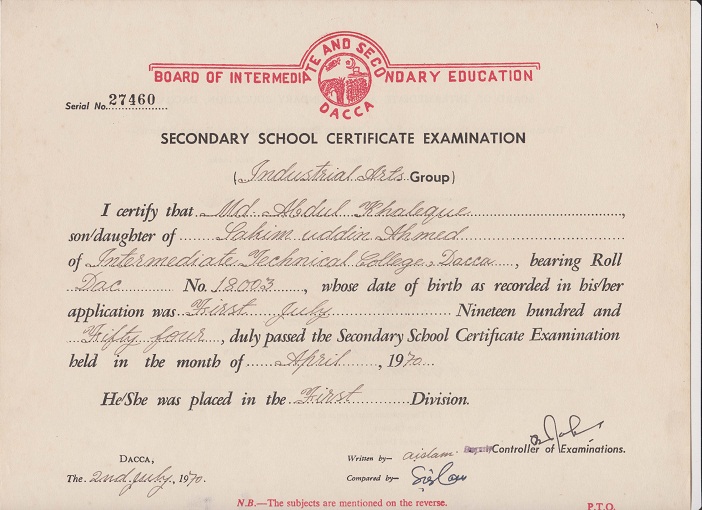 BOARD OF INTERMEDIATE AND SECONDARY EDUCATION
DACCA
Serial No. 27460
SECONDARY SCHOOL CERTIFICATE EXAMINATION
(Industrial Arts Group)
I certify that Md Abdul Khaleque,
son/daughter of Sakim uddin Ahmed
of Intermediate Technical College, Dacca, bearing Roll
Dac No. 18003, whose date of birth as recorded in his/her
application was First July Nineteen hundred and
Fifty four, duly passed the Secondary School Certificate Examination
held in the month of April, 1970.
He/She was placed in the First Division.
DACCA, Written by— aislam. Controller of Examinations.
The 2nd July, 1970. Compared by—
N.B.—The subjects are mentioned on the reverse. P.T.O.